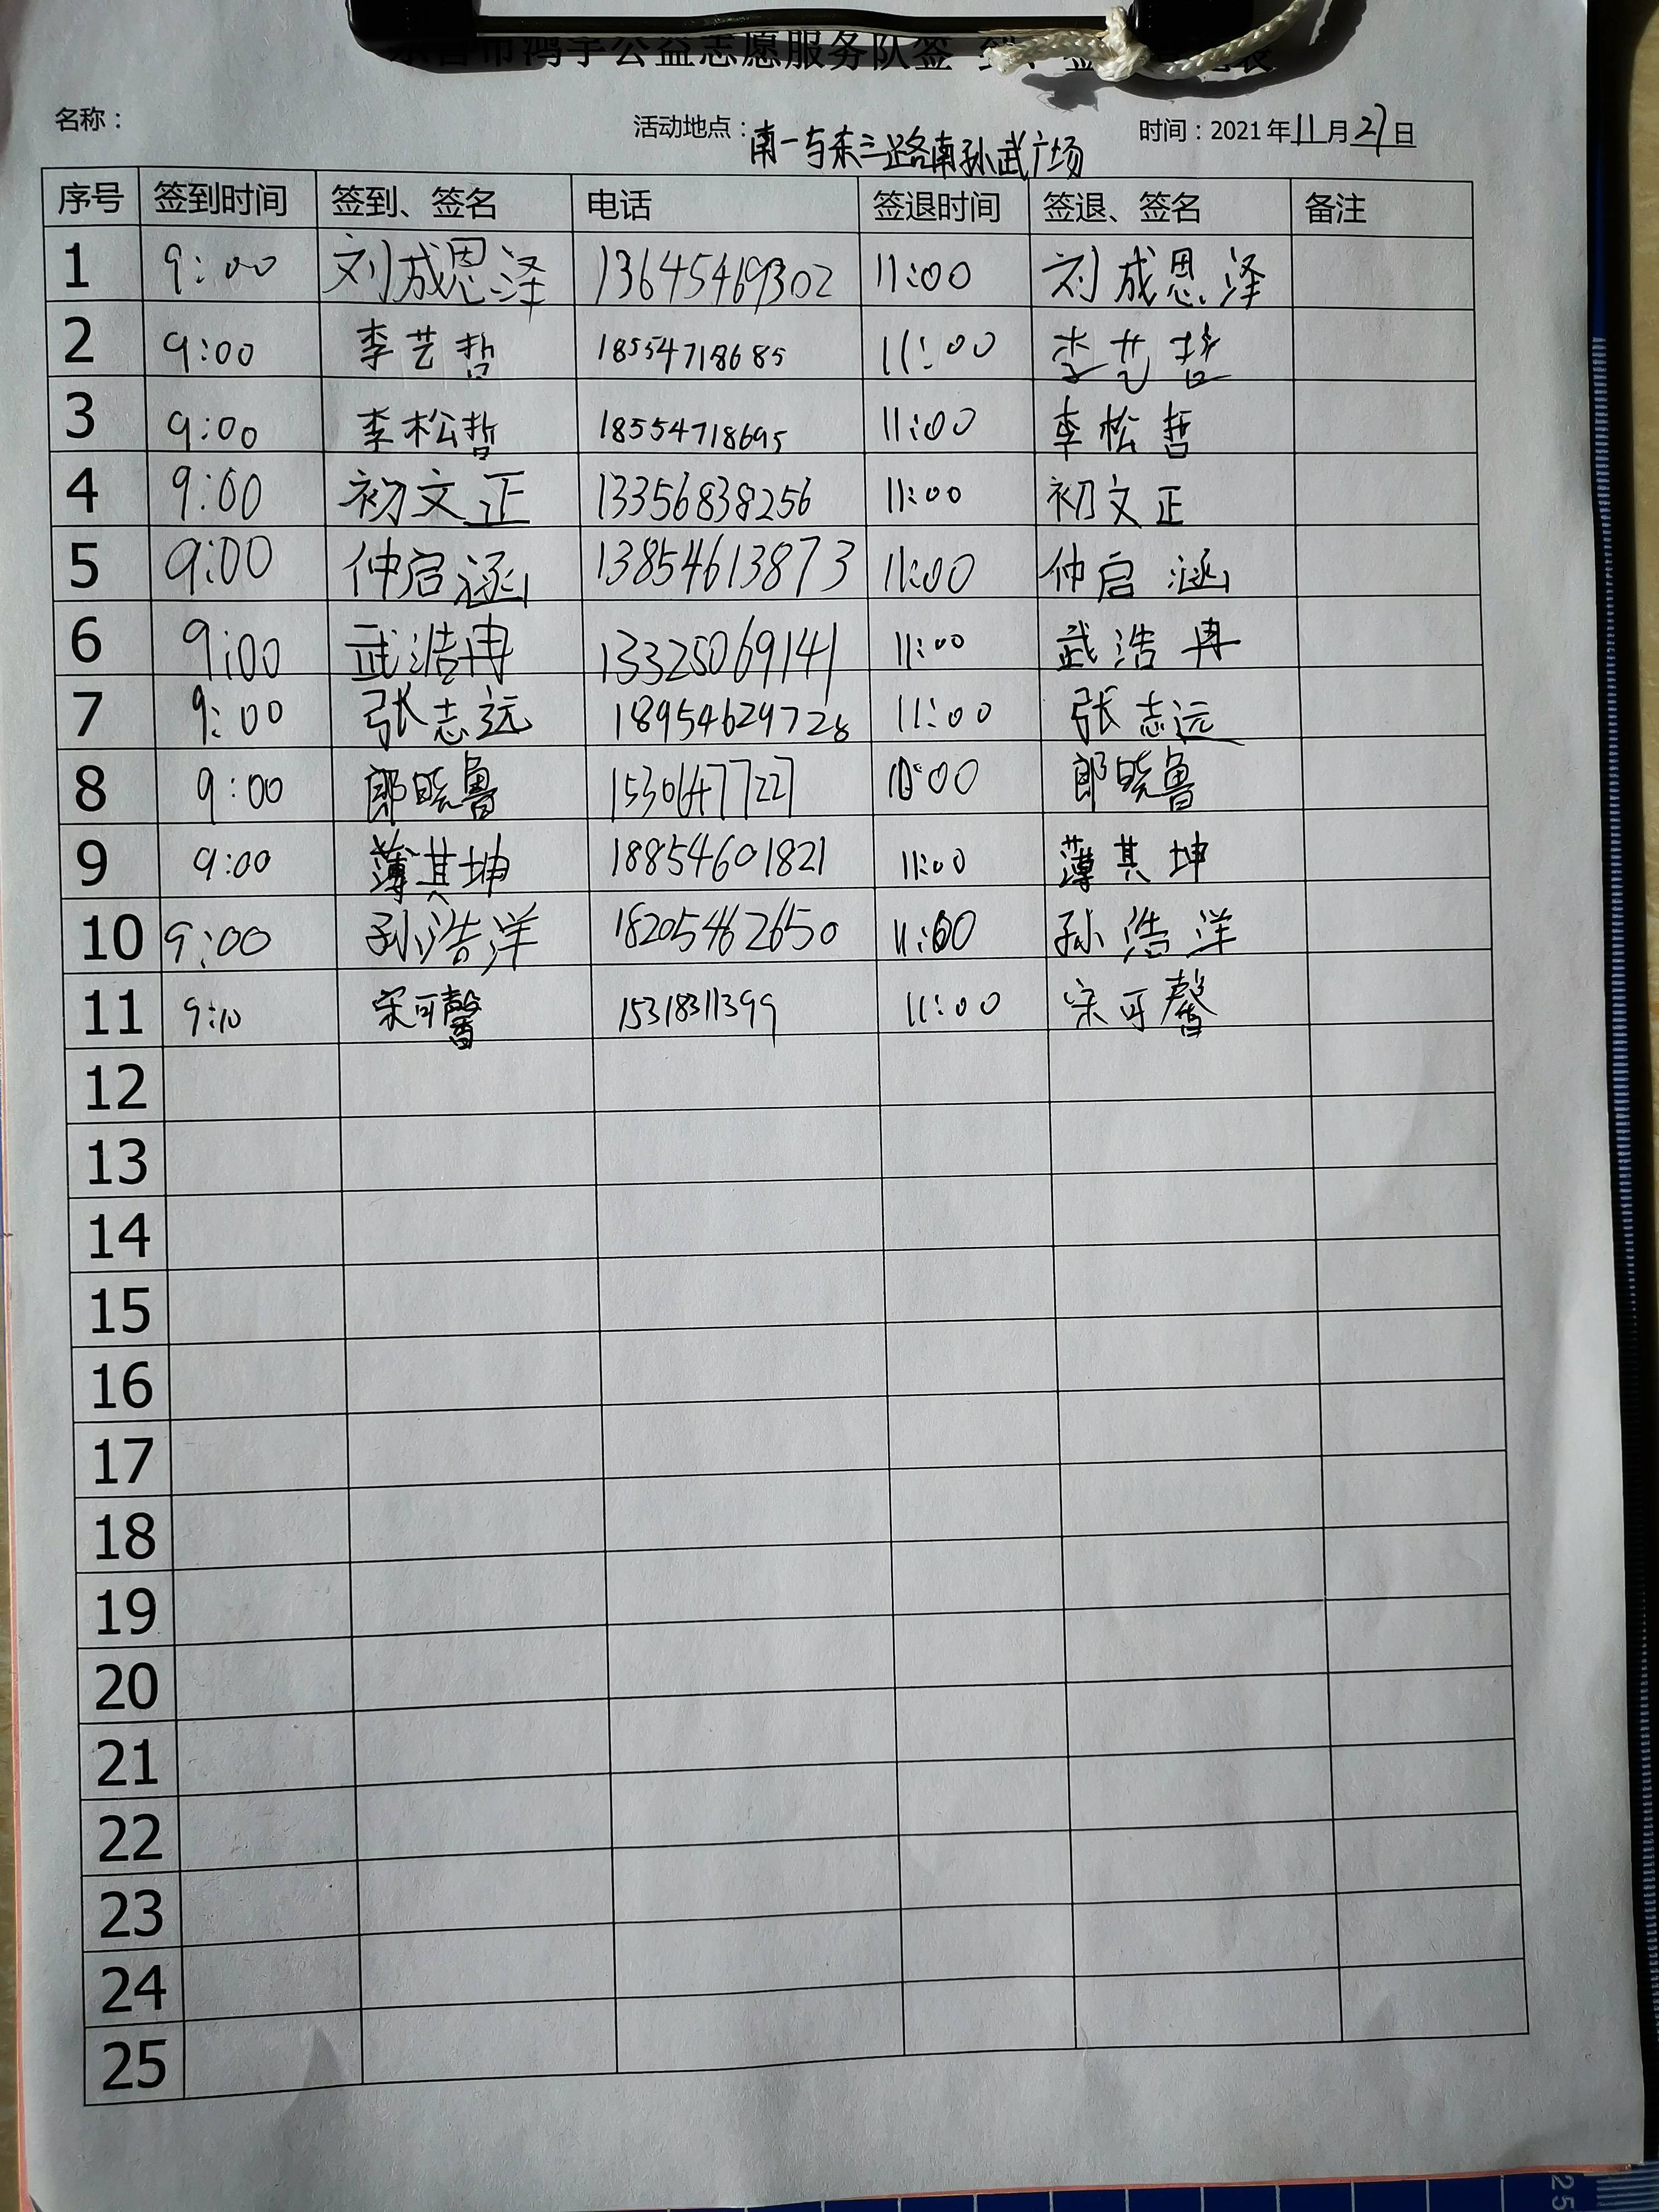 东营市鸿宇公益志愿服务队签
名称： 活动地点：南一与东三路南孙武广场 时间：2021年11月27日
序号 签到时间 签到、签名 电话 签退时间 签退、签名 备注
1 9:00 刘成恩泽 13645469302 11:00 刘成恩泽
2 9:00 李艺哲 18554718685 11:00 李艺哲
3 9:00 李松哲 18554718695 11:00 李松哲
4 9:00 初文正 13356838256 11:00 初文正
5 9:00 仲启涵 13854613873 11:00 仲启涵
6 9:00 武浩冉 13325069141 11:00 武浩冉
7 9:00 张志远 18954629728 11:00 张志远
8 9:00 郎晓鲁 15306477227 郎晓鲁
9 9:00 薄其坤 18854601821 11:00 薄其坤
10 9:00 孙浩洋 18205462650 11:00 孙浩洋
11 9:10 宋可馨 15318311399 11:00 宋可馨
12
13
14
15
16
17
18
19
20
21
22
23
24
25
25